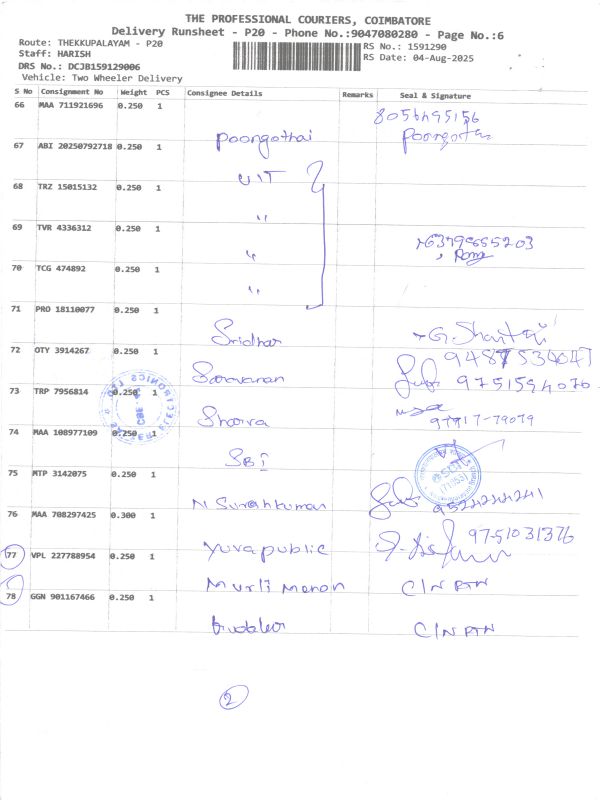 THE PROFESSIONAL COURIERS, COIMBATORE
Delivery Runsheet - P20 - Phone No.:9047080280 - Page No.:6
Route: THEKKUPALAYAM - P20
Staff: HARISH
DRS No.: DCJB159129006
Vehicle: Two Wheeler Delivery
RS No.: 1591290
RS Date: 04-Aug-2025
S No Consignment No Weight PCS Consignee Details Remarks Seal & Signature
66 MAA 711921696 0.250 1 Poongothai 8056495156
67 ABI 20250792718 0.250 1 UIT
68 TRZ 15015132 0.250 1 "
69 TVR 4336312 0.250 1 "
70 TCG 474892 0.250 1 "
71 PRO 18110077 0.250 1 Sridhar
72 OTY 3914267 0.250 1 Saravanan 9751594070
73 TRP 7956814 0.250 1 97917-79079
74 MAA 108977109 0.250 1 SBI
75 MTP 3142075 0.250 1
76 MAA 708297425 0.300 1 Yuva public 9751031376
77 VPL 227788954 0.250 1 Murli Menon C/N RTN
78 GGN 901167466 0.250 1 C/N RTN
2